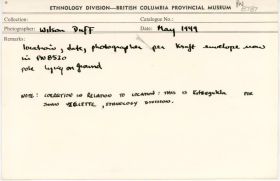 ETHNOLOGY DIVISION—BRITISH COLUMBIA PROVINCIAL MUSEUM
PN
8787
Collection:
Catalogue No.:
Photographer: Wilson Duff
Date: May 1949
Remarks:
location, date, photographer per Kraft envelope now
in PN8510
pole lying on ground
NOTE: CORRECTION IN RELATION TO LOCATION: THIS IS Kitsegukla PER
, ETHNOLOGY DIVISION.